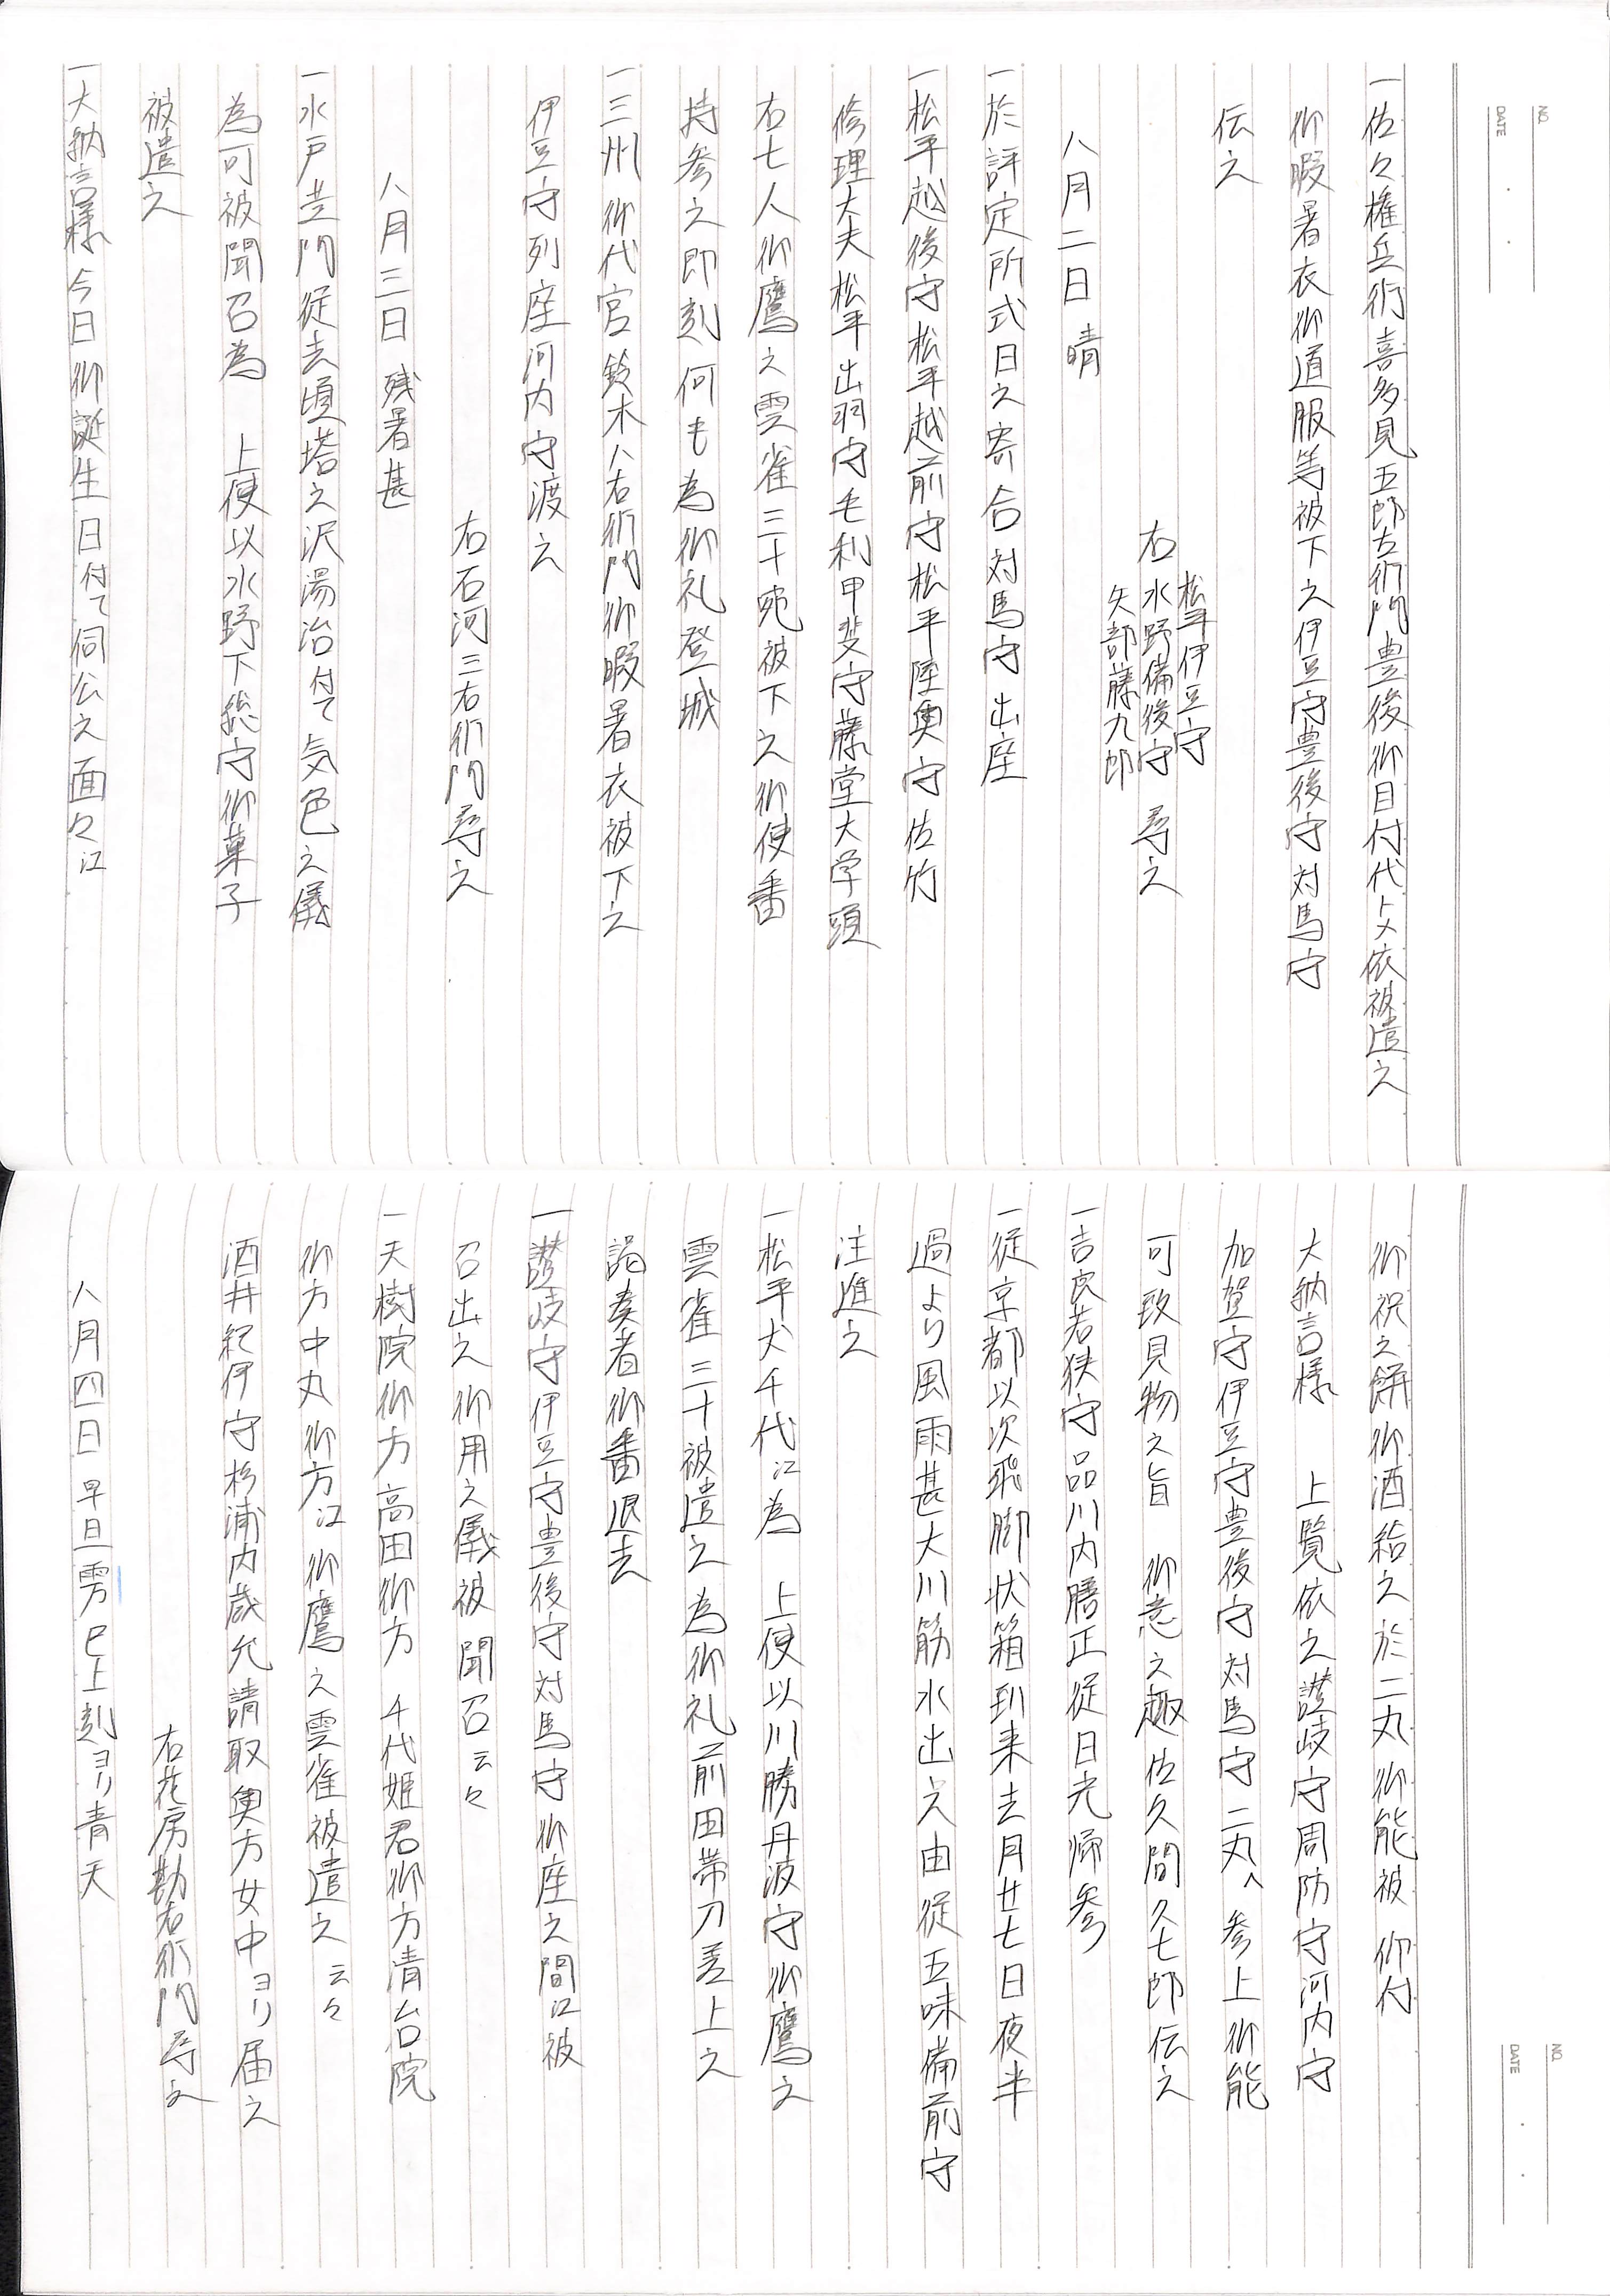 NO.
DATE
一佐々権兵衛喜多見五郎左衛門豊後御目付代トメ依被遣之
御暇暑衣御道服等被下之伊豆守豊後守対馬守
伝之
松平伊豆守
右水野備後守 尋之
矢部藤九郎
八月二日 晴
一於評定所式日之寄合対馬守出座
一松平越後守松平越前守松平陸奥守佐竹
修理大夫松平出羽守毛利甲斐守藤堂大学頭
右七人御鷹之雲雀三十宛被下之御使番
持参之即刻何も為御礼登城
一三州御代官鈴木八右衛門御暇暑衣被下之
伊豆守列座河内守渡之
右石河三右衛門尋之
八月三日 残暑甚
一水戸黄門従去頃塔之沢湯治付て気色之儀
為可被聞召為 上使以水野下総守御菓子
被遣之
一大納言様今日御誕生日付て伺公之面々江
御祝之餅御酒給之於二丸御能被 仰付
大納言様 上覧依之讃岐守周防守河内守
加賀守伊豆守豊後守対馬守二丸へ参上御能
可致見物之旨 御意之趣佐久間久七郎伝之
一吉良若狭守品川内膳正従日光帰参
一従京都以次飛脚状箱到来去月廿七日夜半
過より風雨甚大川筋水出之由従五味備前守
注進之
一松平犬千代江為 上使以川勝丹波守御鷹之
雲雀三十被遣之為御礼前田帯刀差上之
謁奏者御番退去
一讃岐守伊豆守豊後守対馬守御座之間江被
召出之御用之儀被 聞召云々
一天樹院御方高田御方 千代姫君御方清台院
御方中丸御方江御鷹之雲雀被遣之云々
酒井紀伊守杉浦内蔵允請取奥方女中ヨリ届之
右花房勘右衛門尋之
八月四日 早旦雰巳上刻ヨリ青天
NO.
DATE